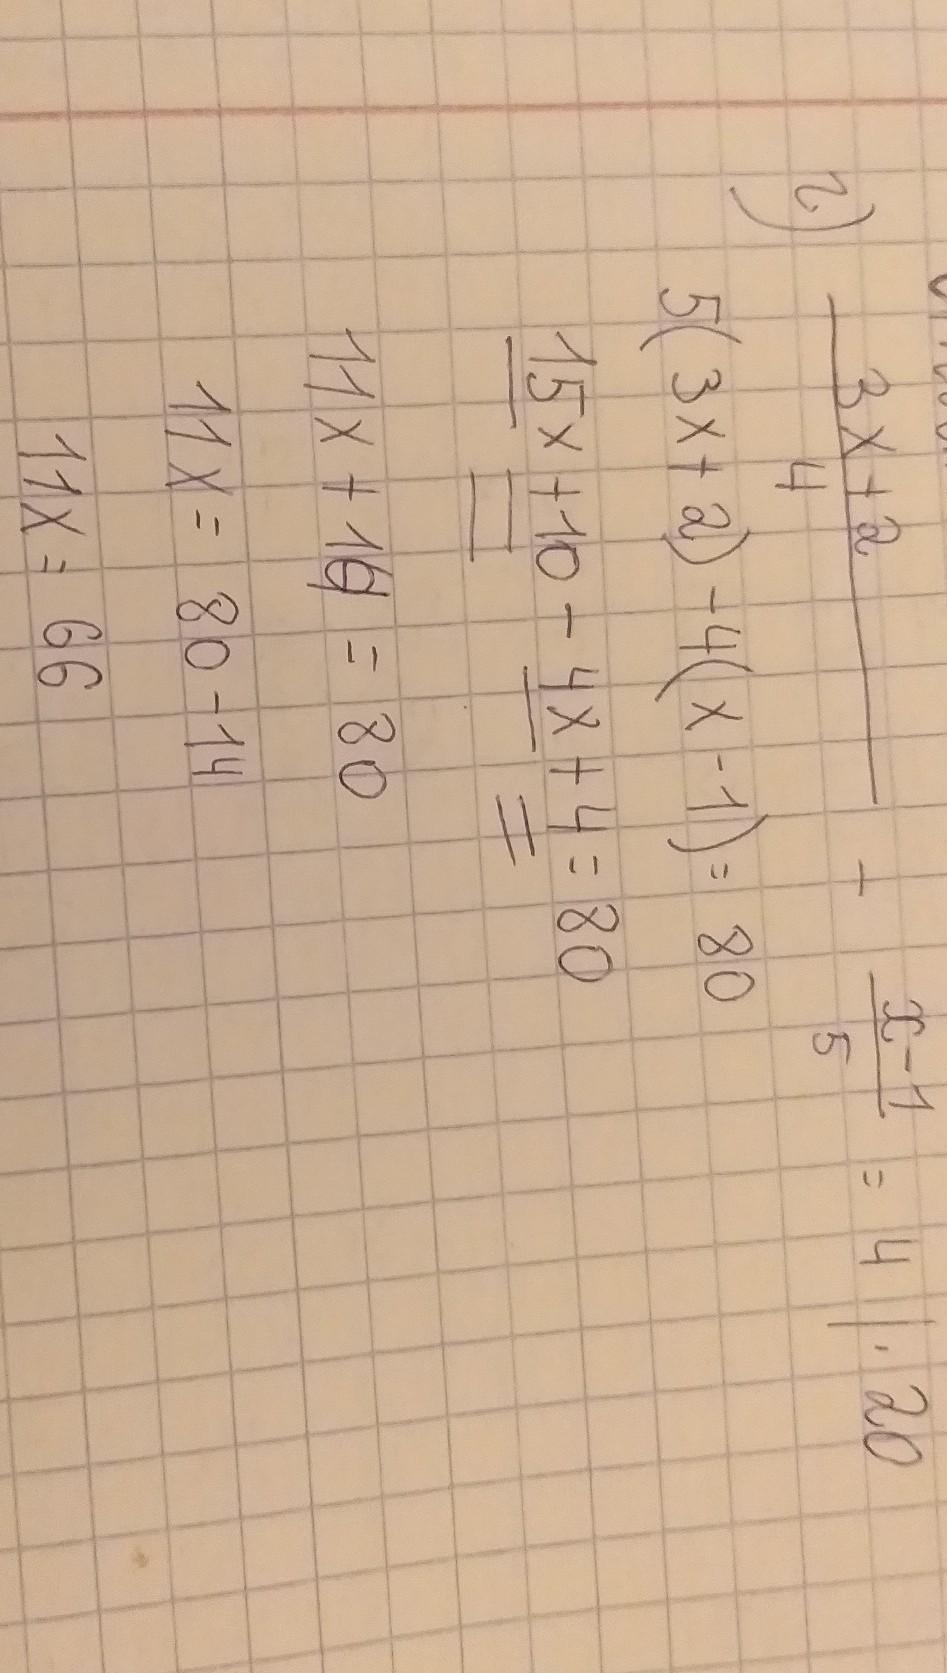 г) (3x+2)/4 - (x-1)/5 = 4 | · 20
5(3x+2) - 4(x-1) = 80
15x + 10 - 4x + 4 = 80
11x + 14 = 80
11x = 80 - 14
11x = 66